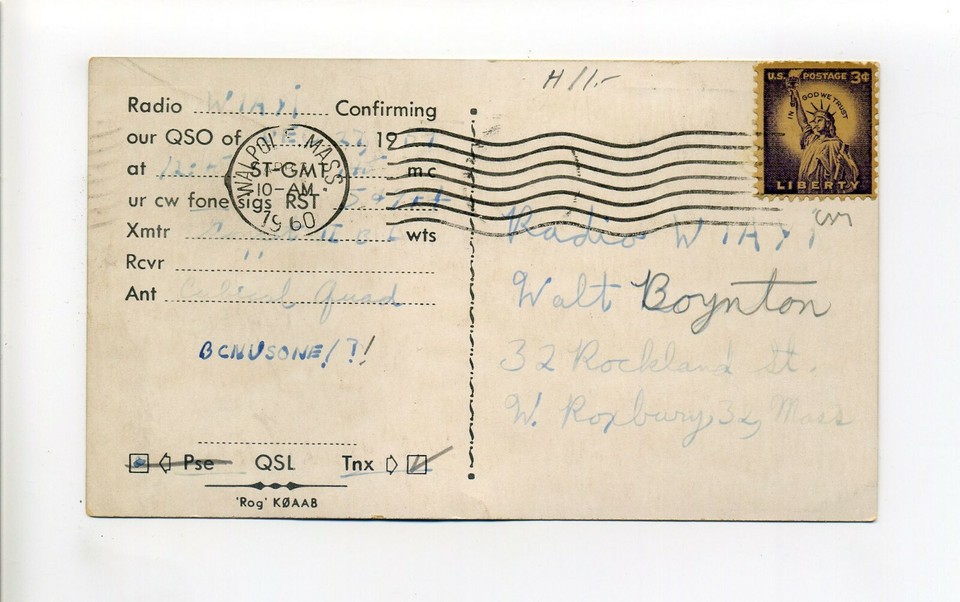 H /1.-
U.S. POSTAGE 3¢
IN GOD WE TRUST
LIBERTY
WALPOLE MASS
10-AM
1960
Radio W1AYi Confirming
our QSO of 19
at ST-GMT mc
ur cw fone sigs RST
Xmtr wts
Rcvr "
Ant Cubical Quad
BCNUSONE/?!
Pse QSL Tnx
'Rog' KØAAB
Radio W1AYi
Walt Boynton
32 Rockland St.
W. Roxbury, 32, Mass